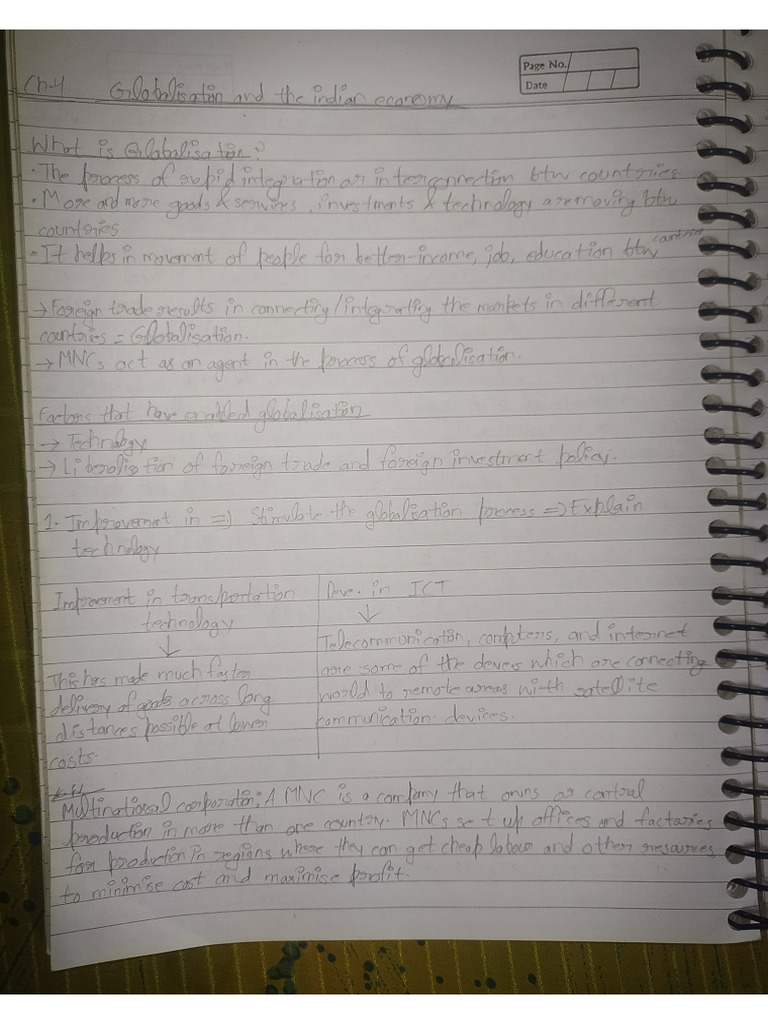 Page No.
Date
Ch-4 Globalisation and the indian economy
What is Globalisation?
· The process of rapid integration or interconnection btw countries.
· More and more goods & services, investments & technology are moving btw
countries
· It helps in movement of people for better income, job, education btw countries
→ Foreign trade results in connecting/integrating the markets in different
countries = Globalisation.
→ MNCs act as an agent in the process of globalisation.
Factors that have enabled globalisation
→ Technology
→ Liberalisation of foreign trade and foreign investment policy.
1. Improvement in => Stimulate the globalisation process => Explain
technology
Improvement in transportation
technology
↓
This has made much faster
delivery of goods across long
distances possible at lower
costs.
Deve. in ICT
↓
Telecommunication, computers, and internet
are some of the devices which are connecting
world to remote areas with satellite
communication devices.
Multinational corporation; A MNC is a company that owns or control
production in more than one country. MNCs set up offices and factories
for production in regions where they can get cheap labour and other resources
to minimise cost and maximise profit.